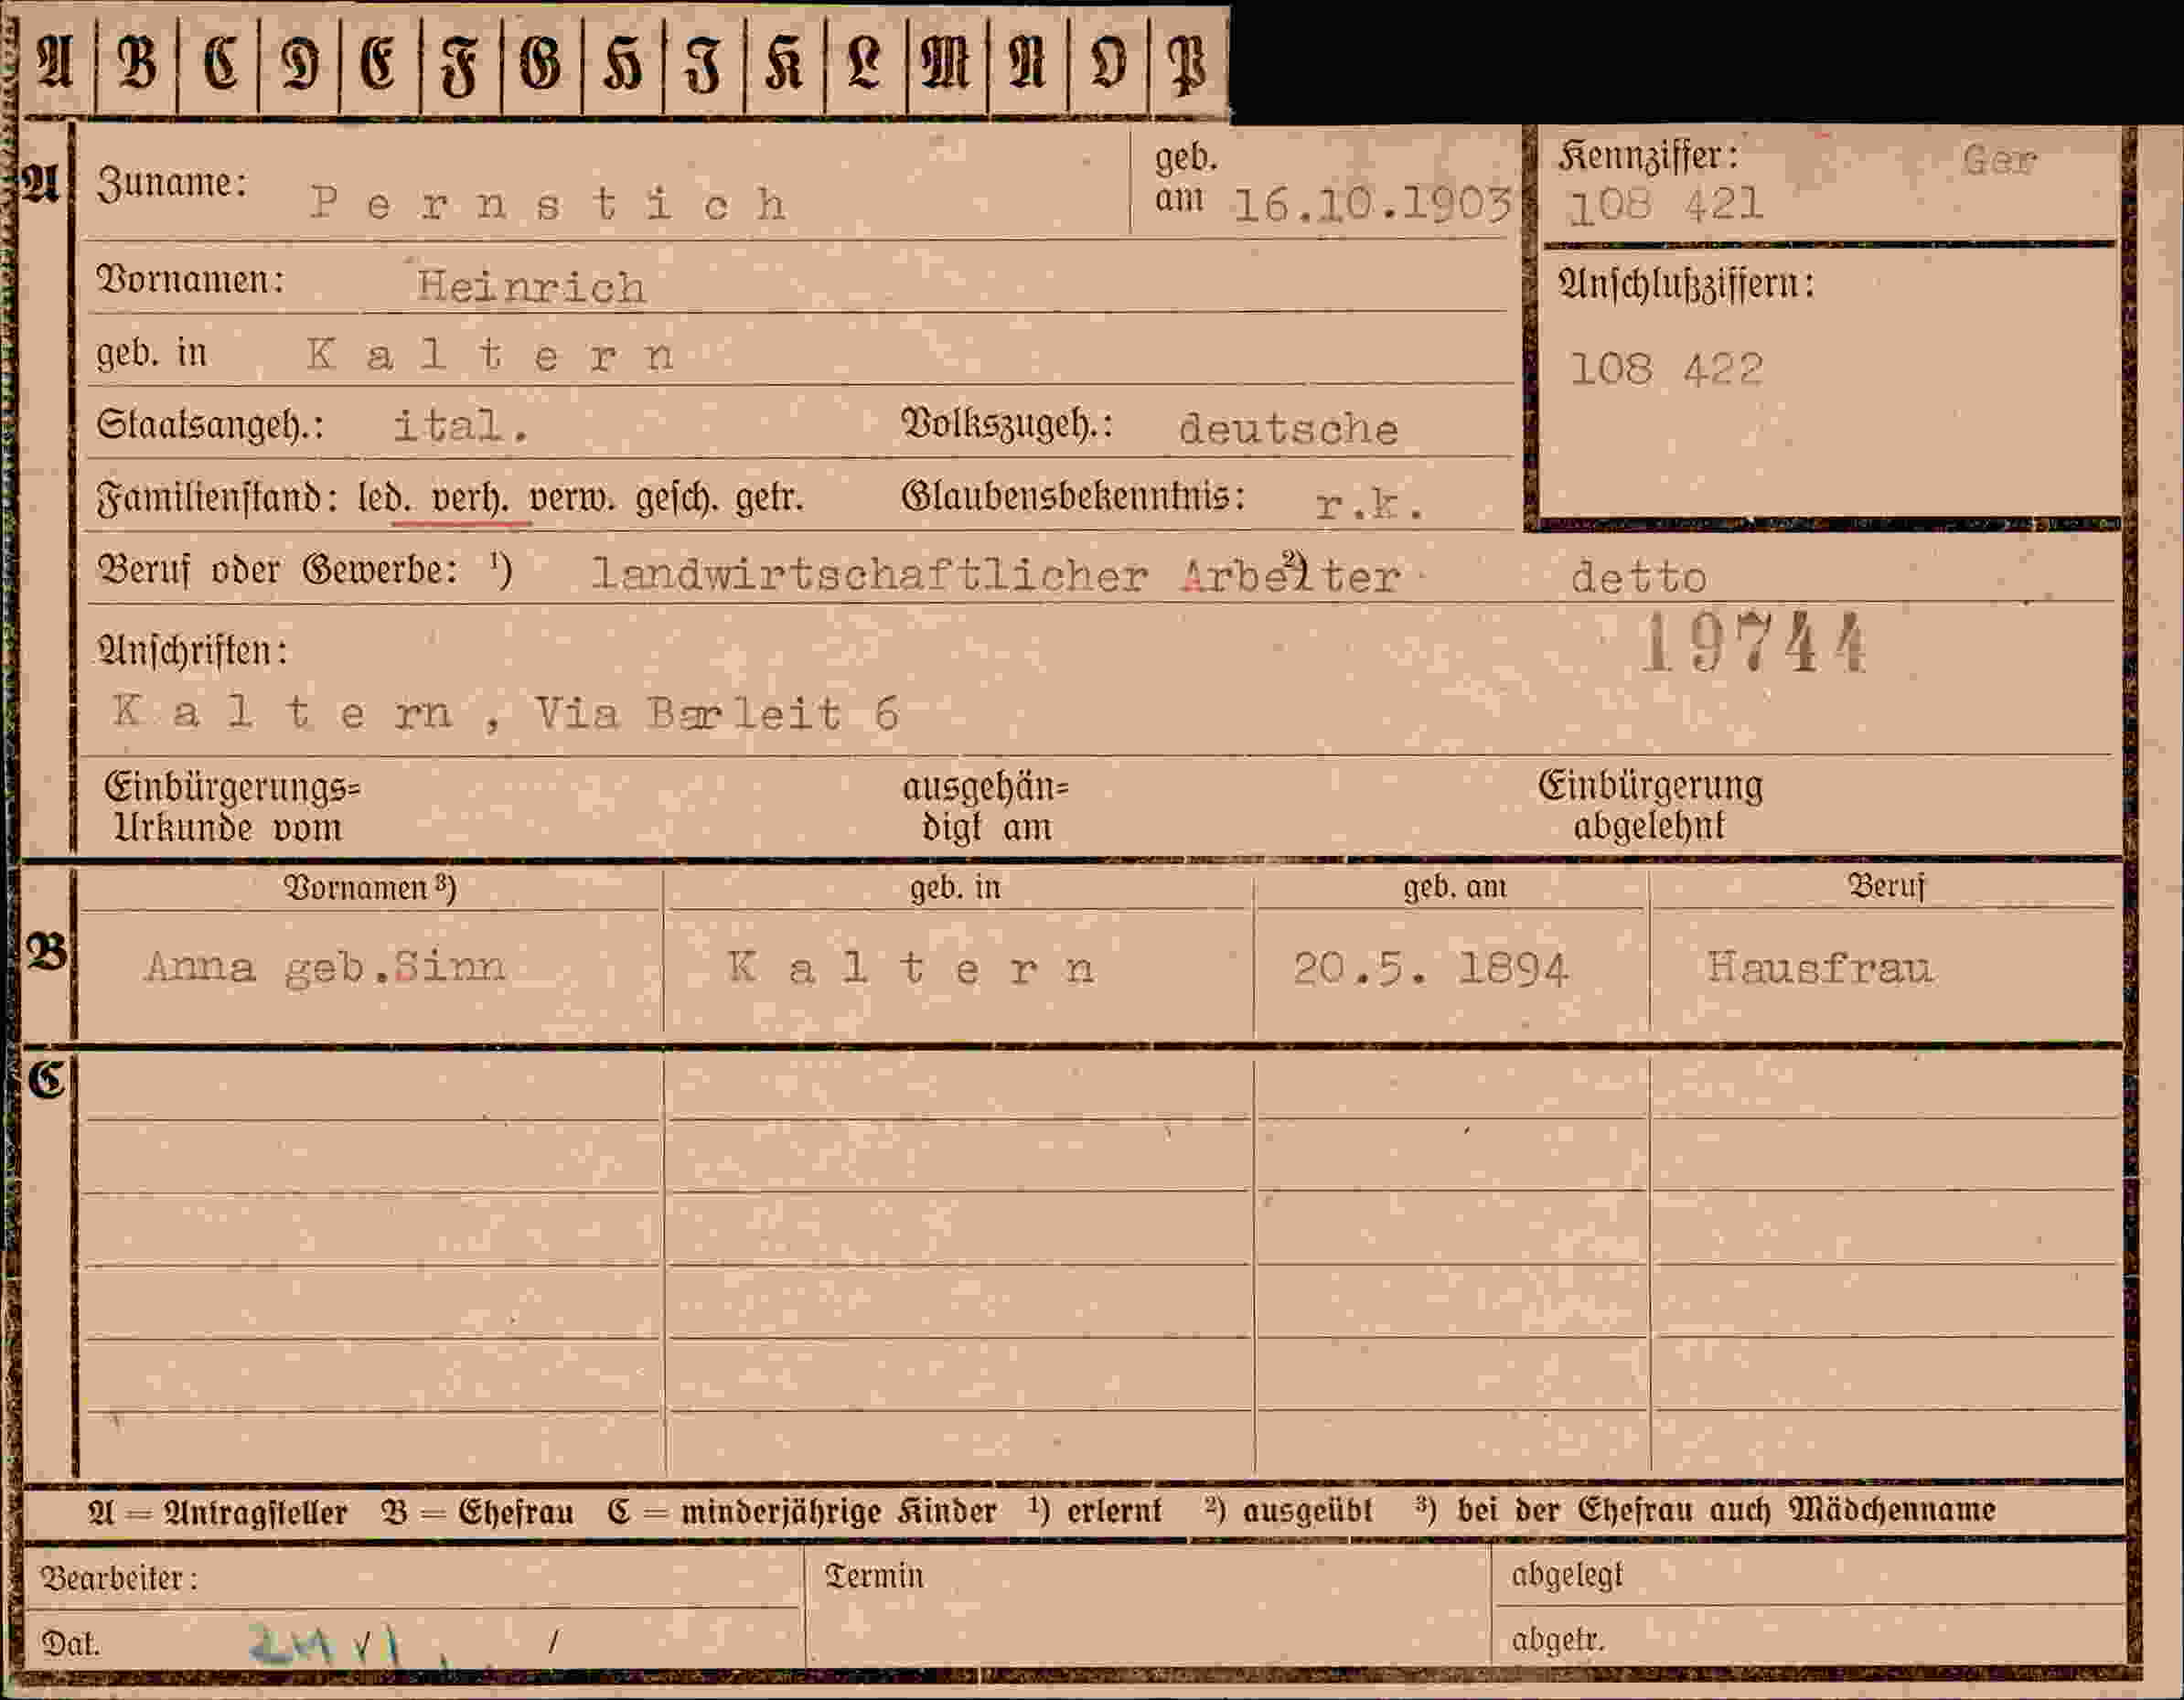 A B C D E F G H I K L M N O P
A Zuname: Pernstich geb. am 16.10.1903 Kennziffer: Ger
108 421
Vornamen: Heinrich Anschlußziffern:
geb. in Kaltern 108 422
Staatsangeh.: ital. Volkszugeh.: deutsche
Familienstand: led. verh. verw. gesch. getr. Glaubensbekenntnis: r.k.
Beruf oder Gewerbe: ¹) landwirtschaftlicher Arbeiter ²) detto
Anschriften: 19744
Kaltern, Via Barleit 6
Einbürgerungs= ausgehän= Einbürgerung
Urkunde vom digt am abgelehnt
Vornamen ³) geb. in geb. am Beruf
B Anna geb.Sinn Kaltern 20.5. 1894 Hausfrau
C
A = Antragsteller B = Ehefrau C = minderjährige Kinder ¹) erlernt ²) ausgeübt ³) bei der Ehefrau auch Mädchenname
Bearbeiter: Termin abgelegt
Dat. / abgetr.